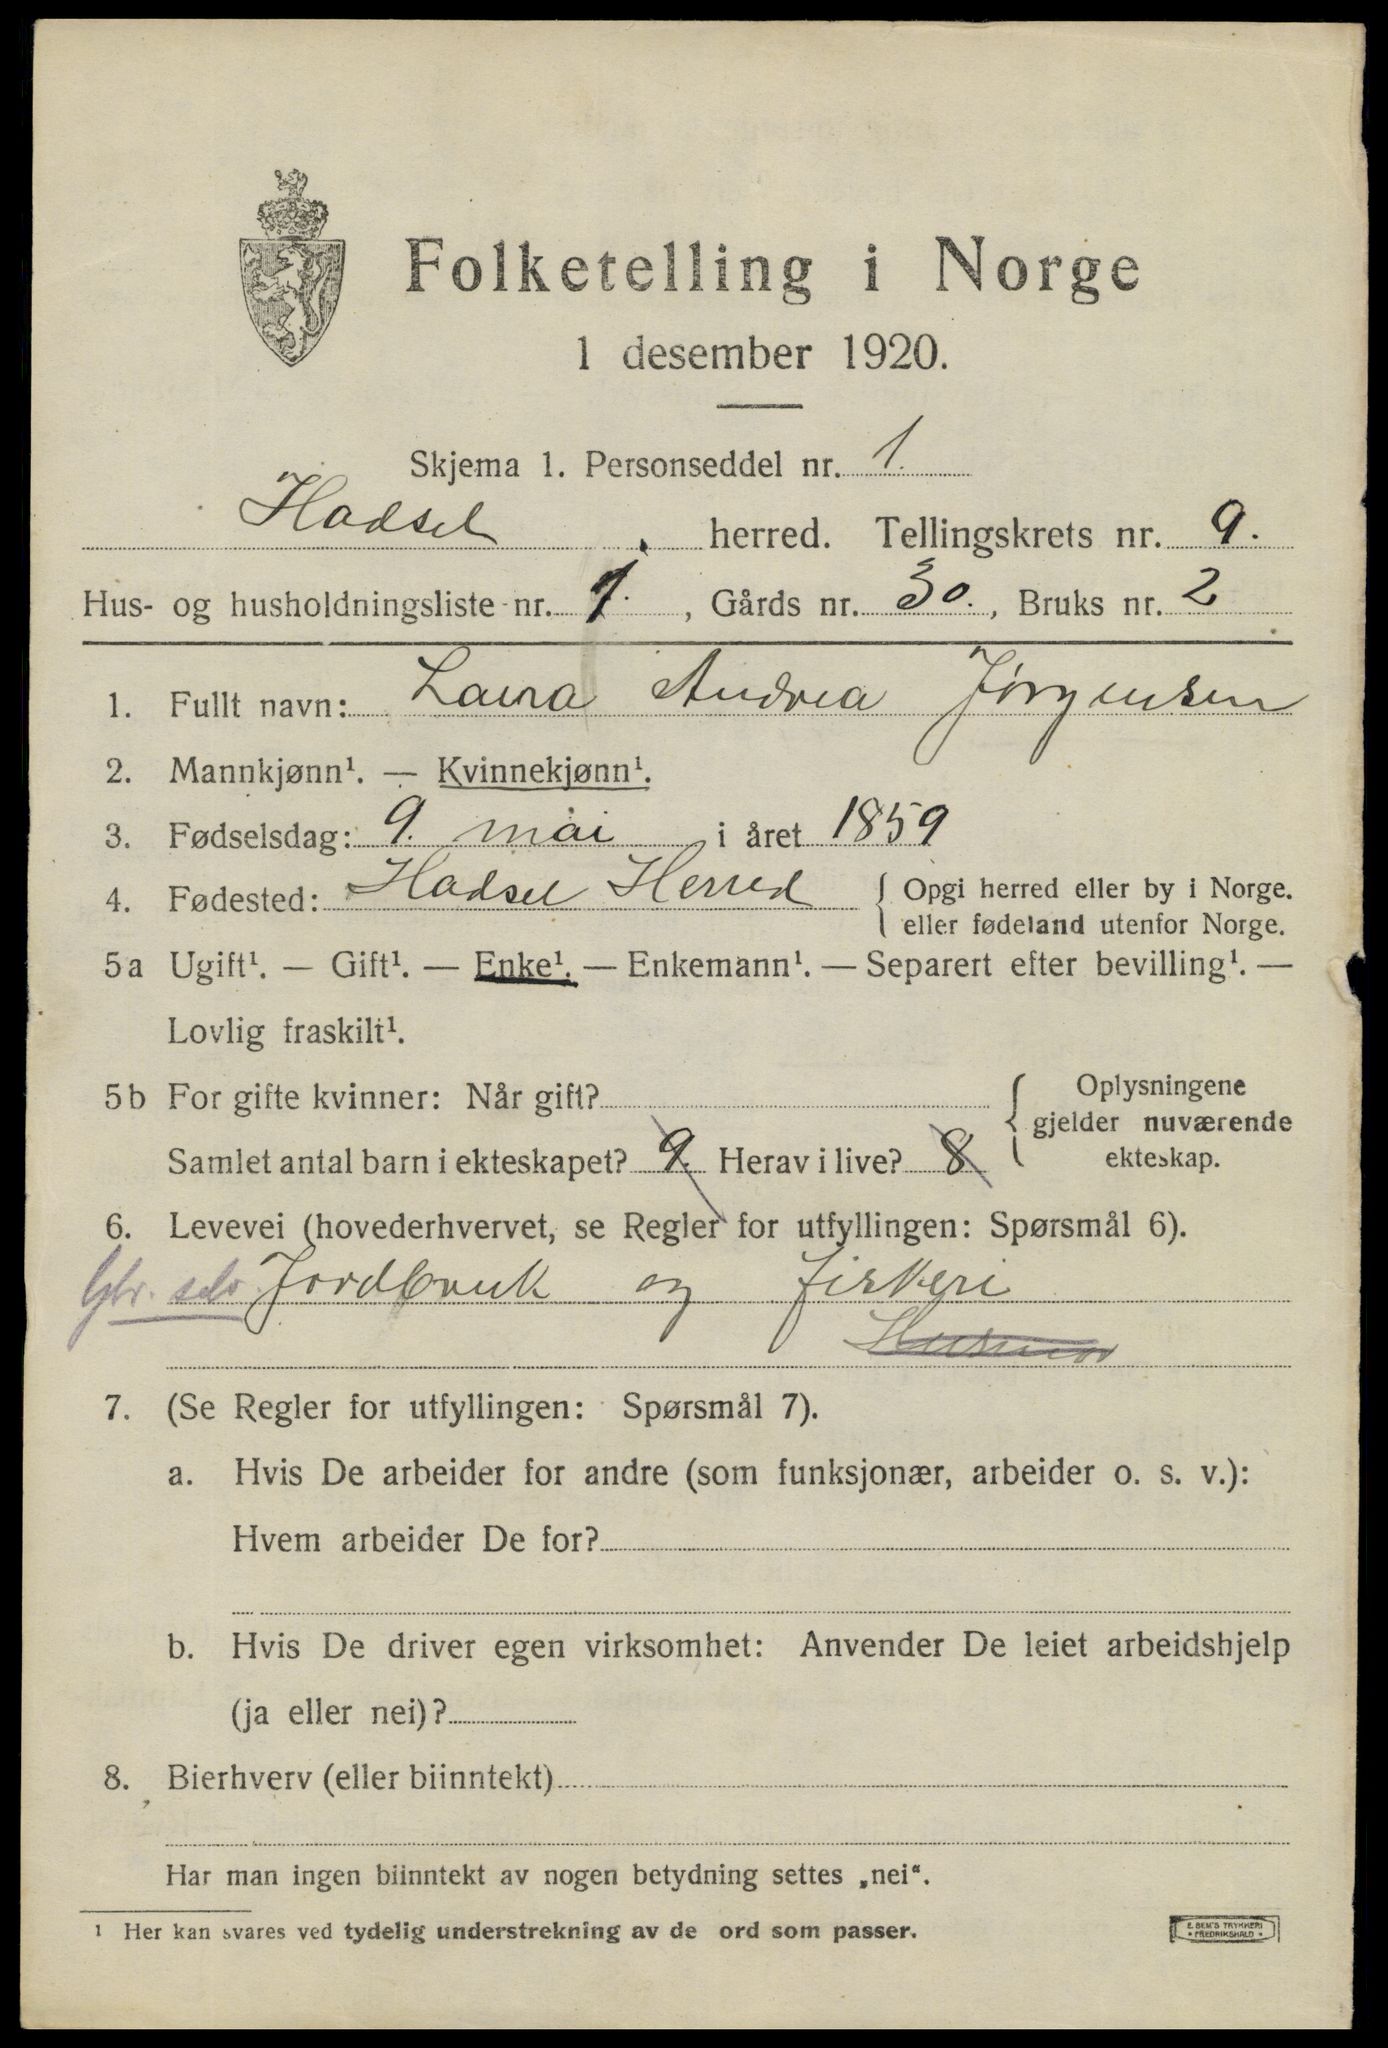 Folketelling i Norge
1 desember 1920.
Skjema 1. Personseddel nr. 1.
Hadsel herred. Tellingskrets nr. 9.
Hus- og husholdningsliste nr. 1. , Gårds nr. 30. , Bruks nr. 2
1. Fullt navn: Laura Andrea Jørgensen
2. Mannkjønn¹. — Kvinnekjønn¹.
3. Fødselsdag: 9. mai i året 1859
4. Fødested: Hadsel Herred { Opgi herred eller by i Norge.
eller fødeland utenfor Norge.
5a Ugift¹. — Gift¹. — Enke¹. — Enkemann¹. — Separert efter bevilling¹. —
Lovlig fraskilt¹.
5b For gifte kvinner: Når gift? { Oplysningene
gjelder nuværende
Samlet antal barn i ekteskapet? 9. Herav i live? 8 ekteskap.
6. Levevei (hovederhvervet, se Regler for utfyllingen: Spørsmål 6).
Gbr. selv Jordbruk og fiskeri
Husmor
7. (Se Regler for utfyllingen: Spørsmål 7).
a. Hvis De arbeider for andre (som funksjonær, arbeider o. s. v.):
Hvem arbeider De for?
b. Hvis De driver egen virksomhet: Anvender De leiet arbeidshjelp
(ja eller nei)?
8. Bierhverv (eller biinntekt)
Har man ingen biinntekt av nogen betydning settes „nei“.
¹ Her kan svares ved tydelig understrekning av de ord som passer.
E. SEM'S TRYKKERI
• FREDRIKSHALD •